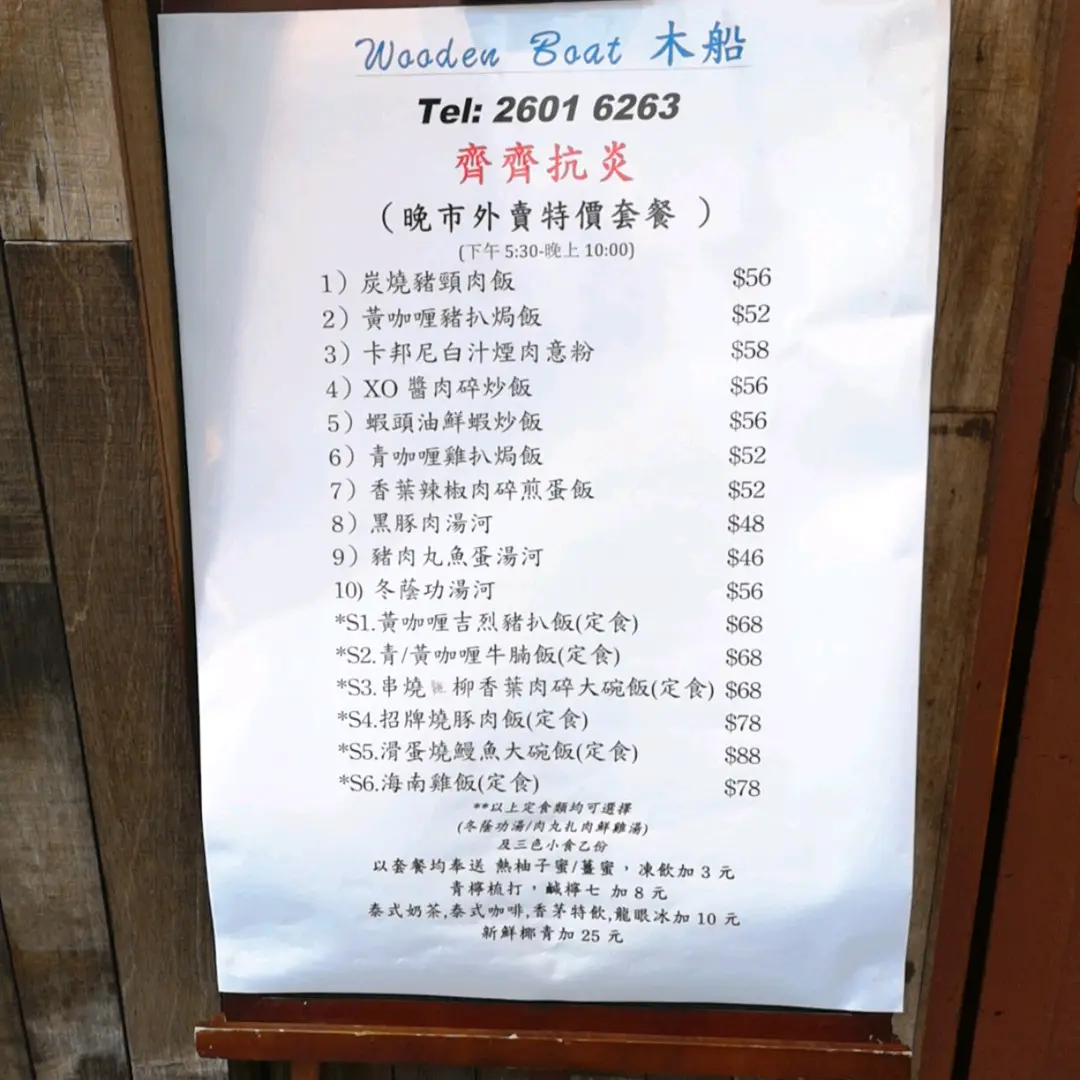 Wooden Boat 木船
Tel: 2601 6263
齊齊抗炎
（晚市外賣特價套餐 ）
(下午 5:30-晚上 10:00)
1）炭燒豬頸肉飯 $56
2）黃咖喱豬扒焗飯 $52
3）卡邦尼白汁煙肉意粉 $58
4）XO 醬肉碎炒飯 $56
5）蝦頭油鮮蝦炒飯 $56
6）青咖喱雞扒焗飯 $52
7）香葉辣椒肉碎煎蛋飯 $52
8）黑豚肉湯河 $48
9）豬肉丸魚蛋湯河 $46
10) 冬蔭功湯河 $56
*S1.黃咖喱吉烈豬扒飯(定食) $68
*S2.青/黃咖喱牛腩飯(定食) $68
*S3.串燒柳香葉肉碎大碗飯(定食) $68
*S4.招牌燒豚肉飯(定食) $78
*S5.滑蛋燒鰻魚大碗飯(定食) $88
*S6.海南雞飯(定食) $78
**以上定食類均可選擇
(冬蔭功湯/肉丸扎肉鮮雞湯)
及三色小食乙份
以套餐均奉送 熱柚子蜜/薑蜜，凍飲加 3 元
青檸梳打，鹹檸七 加 8 元
泰式奶茶,泰式咖啡,香茅特飲,龍眼冰加 10 元
新鮮椰青加 25 元